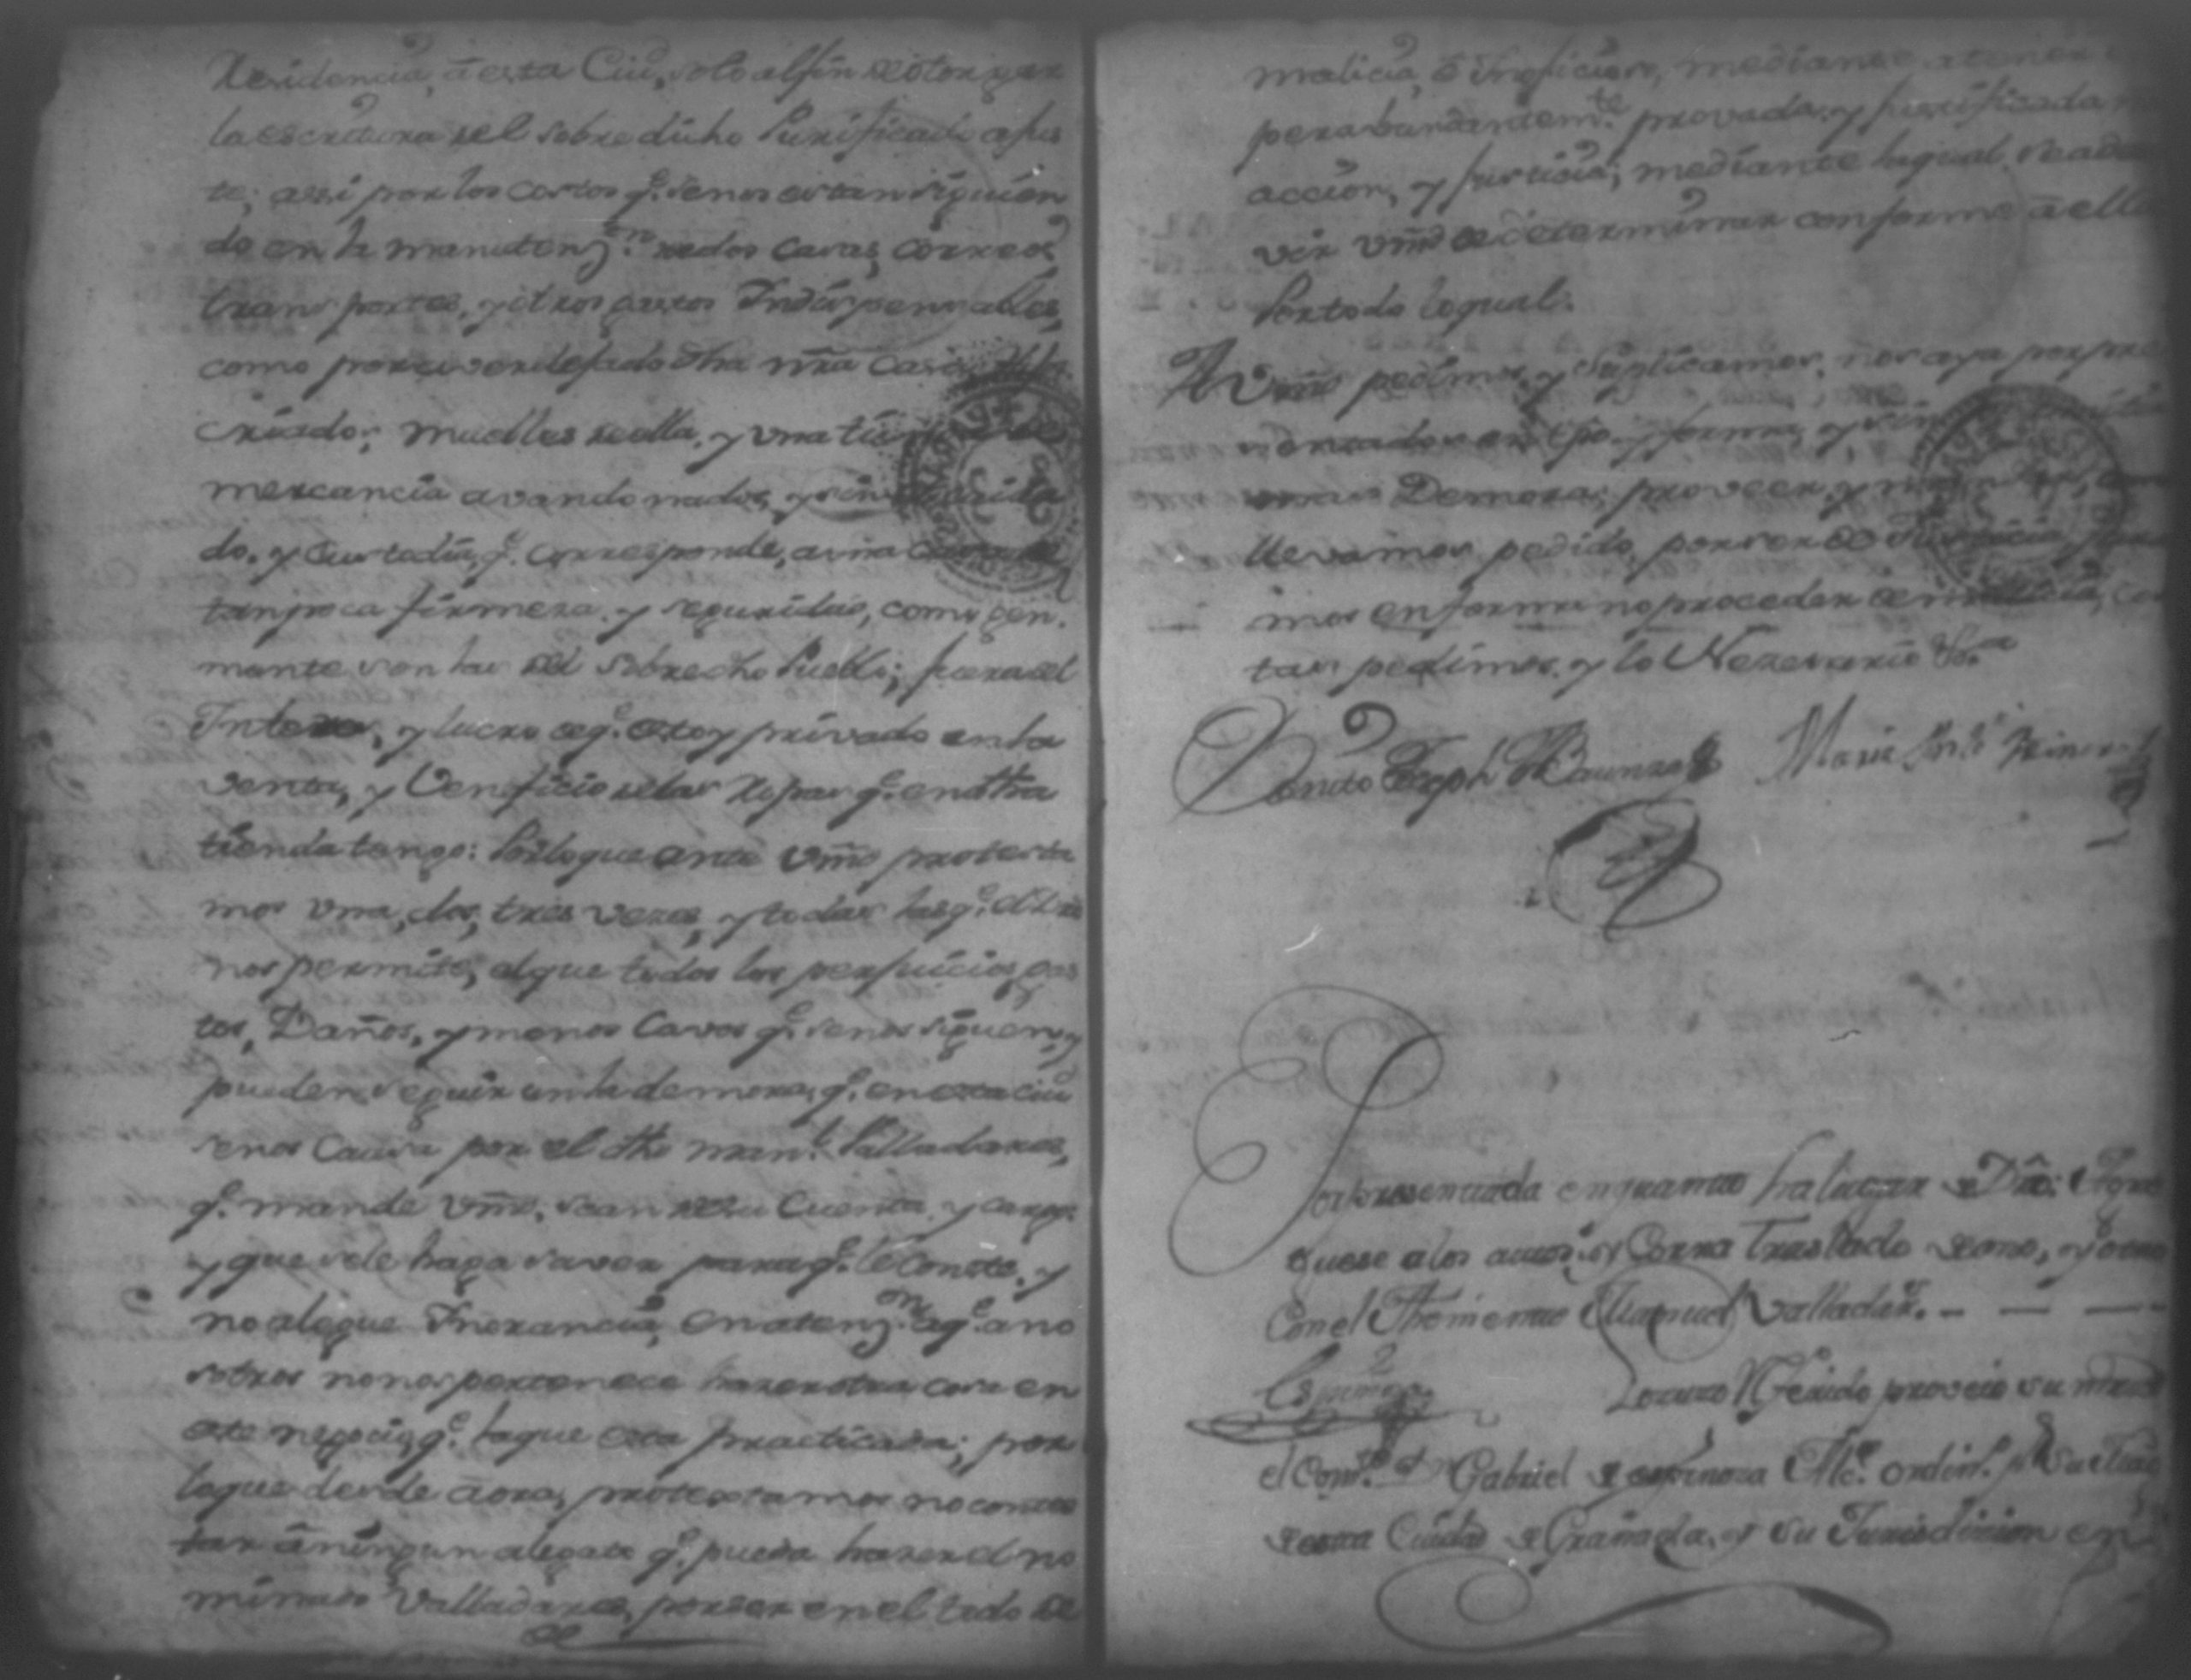 Residencia, â esta Ciu.d, solo al fin de otorgar
la escritura del sobre dicho Purificado ajus
te; assi por los costos q.e se nos estan siguien
do en la manutenz.on de dos casas, correos
transportes, y otros gastos Indispensables,
como por aver dejado dha nrã Casa,
criado, muebles de ella, y una tien
mercancia avandonados, y sin
do, y Custodia, q.e corresponde, a una
tan poca firmeza, y seguridad, como gen.
mente son las del sobredho Pueblo; fuera del
Interes, y lucro de q.e estoy privado en la
venta, y Veneficio de las Ropas q.e en dha
tienda tengo: Por lo que ante Vmd protesta
mos una, dos, tres vezes, y todas las q.e el Dro
nos permite, el que todos los perjuicios, gas
tos, Daños, y menos Cavos q.e se nos siguen, y
pueden seguir en la demora, q.e en esta ciu.d
se nos Causa por el dho man.l Valladares,
q.e mande Vmd. sean de su Cuenta, y cargo.
y que se le haga saver para q.e le Conste, y
no alegue Ynorancia, en atenz.on a q.e a no
sotros no nos pertenece hazer otra cosa en
este negocio, q.e la que esta practicada; por
lo que desde aora, protextamos no contes
tar â ningun alegato q.e pueda hazer el no
minado Valladares, por ser en el todo de
malicia, ô Inoficioso, mediante a tener
perabundantem.te provada, y justificada
acción, y justicia; mediante la qual se
vir Vmd de determinar conforme â ella
Por todo lo qual.
A Vmd pedimos, y suplicamos, nos aya por pre
sentados en tpo, y forma, y sin
mas Demora, proveer, y
llevamos pedido, por ser de Justicia,
mos en forma no proceder de malicia, cos
tas pedimos, y lo Nezesario &.a
Benito Joseph Maria
Por presentada en quanto ha lugar de Dro: Agre
guese a los autos, y Corra traslado de uno, y otro
Con el Theniente Manuel Valladar.s
Espinoza Lorenzo proveio su mrd
el Com.o d.n Gabriel de espinoza Alc.e ordin.o p.r Su Mag.d
de esta Ciudad de Granada, y su Jurisdicion en